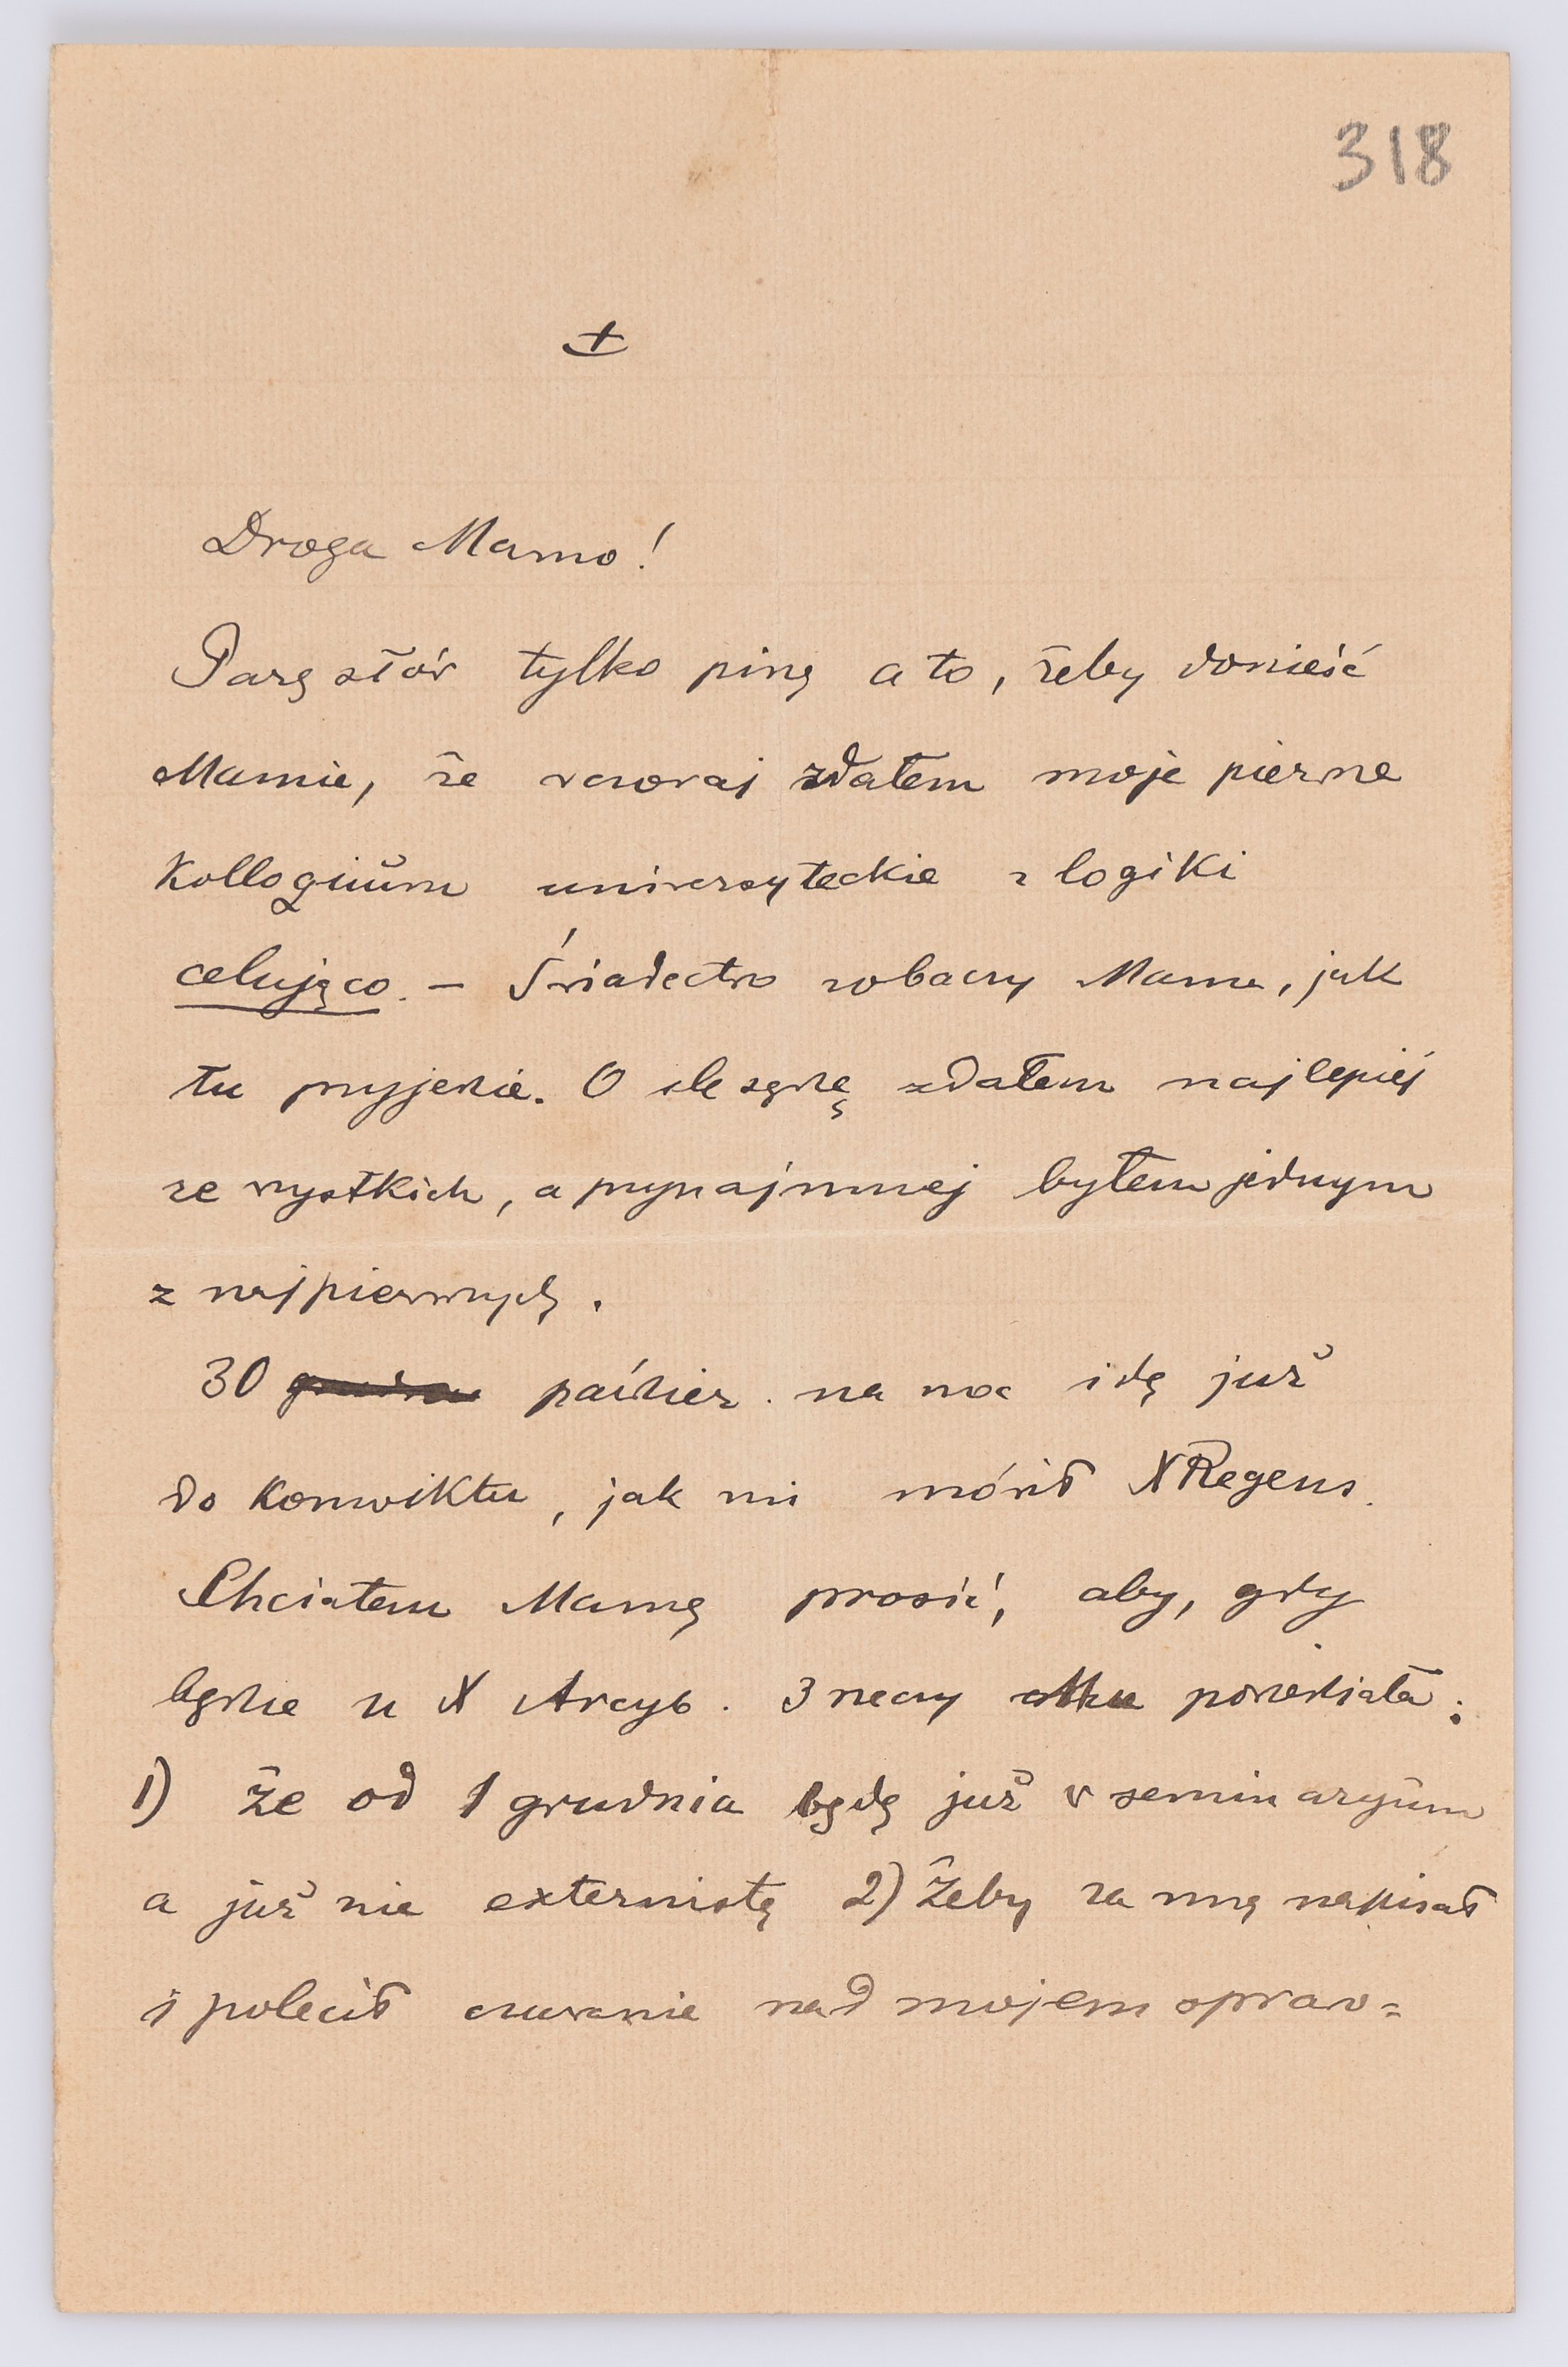 318
+
Droga Mamo!
Parę słów tylko piszę a to, żeby donieść
Mamie, że wczoraj zdałem moje pierwsze
Kolloquium uniwersyteckie z logiki
celująco. – Świadectwo zobaczy Mama, jak
tu przyjedzie. O ile sądzę zdałem najlepiej
ze wszystkich, a przynajmniej byłem jednym
z najpierwszych.
30 paździer. na noc idę już
do Konwiktu, jak mi mówił X Regens.
Chciałem Mamę prosić, aby, gdy
będzie u X Arcyb. 3 rzeczy powiedziała:
1) że od 1 grudnia będę już w seminaryum
a już nie externistą 2) Żeby za mną napisał
i polecił czuwanie nad mojem spraw=